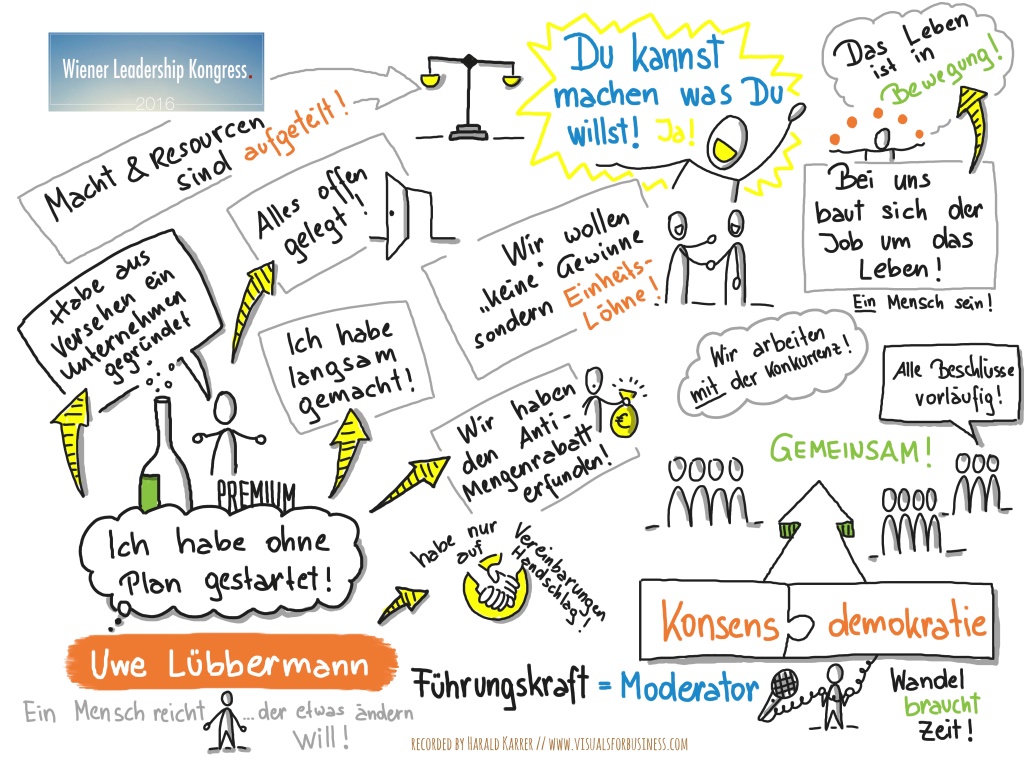 Wiener Leadership Kongress.
2016
Macht & Resourcen
sind aufgeteilt!
Alles offen
gelegt!
Habe aus
versehen ein
unternehmen
gegründet
Ich habe
langsam
gemacht!
PREMIUM
Ich habe ohne
Plan gestartet!
Uwe Lübbermann
Ein Mensch reicht ...der etwas ändern
Will!
Du kannst
machen was Du
willst! Ja!
Wir wollen
„keine" Gewinne
sondern Einheits-
Löhne!
Wir haben
den Anti-
Mengenrabatt
erfunden!
€
habe nur
auf
Vereinbarungen
Handschlag!
Das Leben
ist in
Bewegung!
Bei uns
baut sich der
Job um das
Leben!
Ein Mensch sein!
Wir arbeiten
mit der Konkurrenz!
Alle Beschlüsse
vorläufig!
GEMEINSAM!
Konsens demokratie
Führungskraft = Moderator
Wandel
braucht
Zeit!
RECORDED BY HARALD KARRER // WWW.VISUALSFORBUSINESS.COM